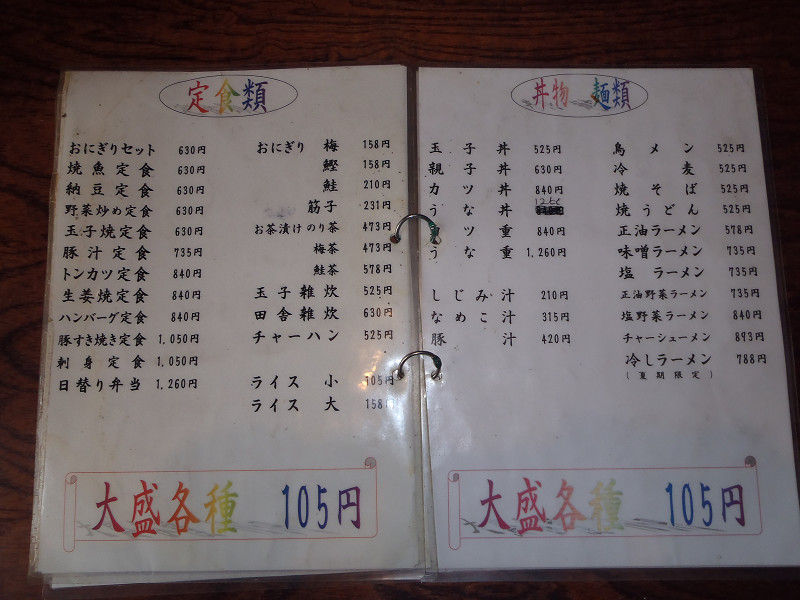 定食類
おにぎりセット 630円
焼魚定食 630円
納豆定食 630円
野菜炒め定食 630円
玉子焼定食 630円
豚汁定食 735円
トンカツ定食 840円
生姜焼定食 840円
ハンバーグ定食 840円
豚すき焼き定食 1,050円
刺身定食 1,050円
日替り弁当 1,260円
おにぎり 梅 158円
鰹 158円
鮭 210円
筋子 231円
お茶漬け のり茶 473円
梅茶 473円
鮭茶 578円
玉子雑炊 525円
田舎雑炊 630円
チャーハン 525円
ライス 小 105円
ライス 大 158
大盛各種 105円
丼物 麺類
玉子丼 525円
親子丼 630円
カツ丼 840円
うな丼
ツ重 840円
うな重 1,260円
しじみ汁 210円
なめこ汁 315円
豚汁 420円
鳥メン 525円
冷麦 525円
焼そば 525円
焼うどん 525円
正油ラーメン 578円
味噌ラーメン 735円
塩ラーメン 735円
正油野菜ラーメン 735円
塩野菜ラーメン 840円
チャーシューメン 893円
冷しラーメン 788円
(夏期限定)
大盛各種 105円